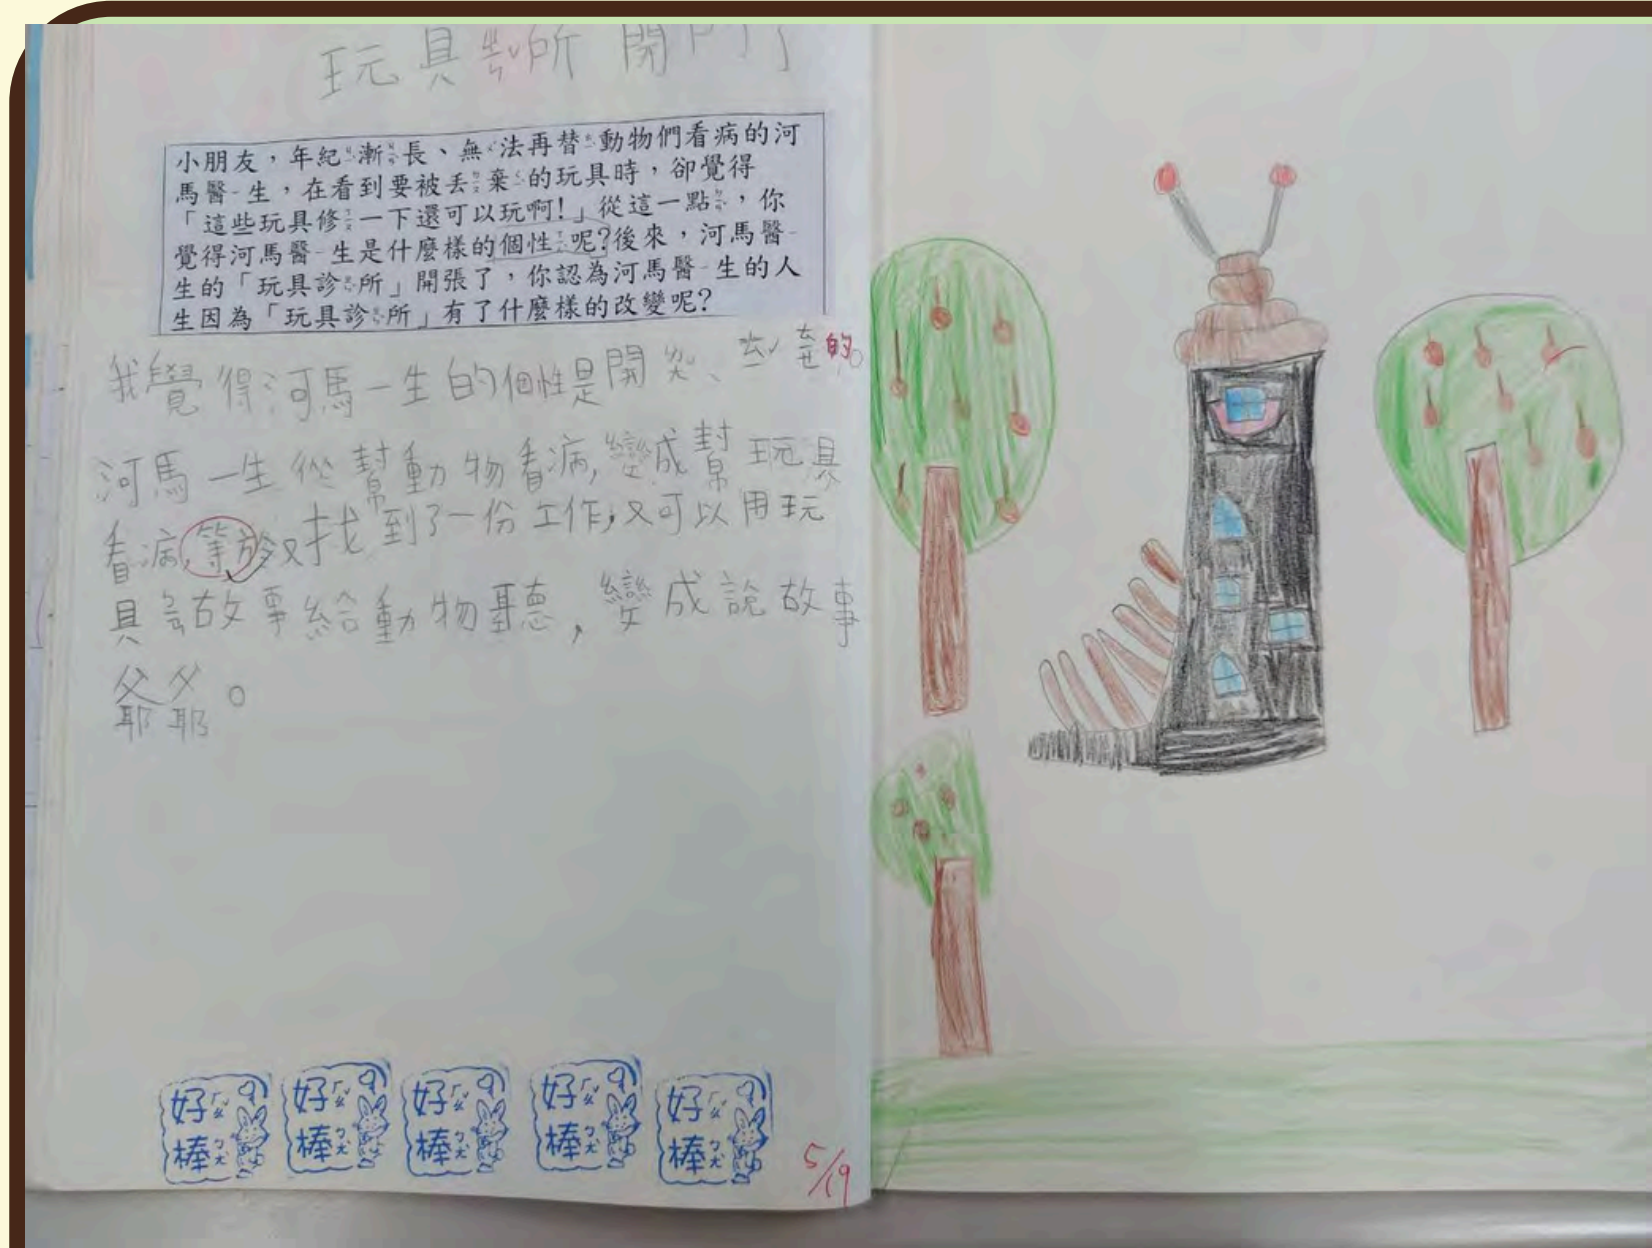 玩具ㄓㄣˇ所開門了
小朋友，年紀漸長、無法再替動物們看病的河
馬醫生，在看到要被丟棄的玩具時，卻覺得
「這些玩具修一下還可以玩啊!」從這一點，你
覺得河馬醫生是什麼樣的個性呢?後來，河馬醫
生的「玩具診所」開張了，你認為河馬醫生的人
生因為「玩具診所」有了什麼樣的改變呢?
我覺得河馬一生的個性是開 、 的。
河馬一生從幫動物看病,變成幫玩具
看病,等於又找到了一份工作,又可以用玩
具 故事給動物聽，變成說故事
爺爺。
好ㄏㄠˇ 好ㄏㄠˇ 好ㄏㄠˇ 好ㄏㄠˇ 好ㄏㄠˇ
棒ㄅㄤˋ 棒ㄅㄤˋ 棒ㄅㄤˋ 棒ㄅㄤˋ 棒ㄅㄤˋ
5/19